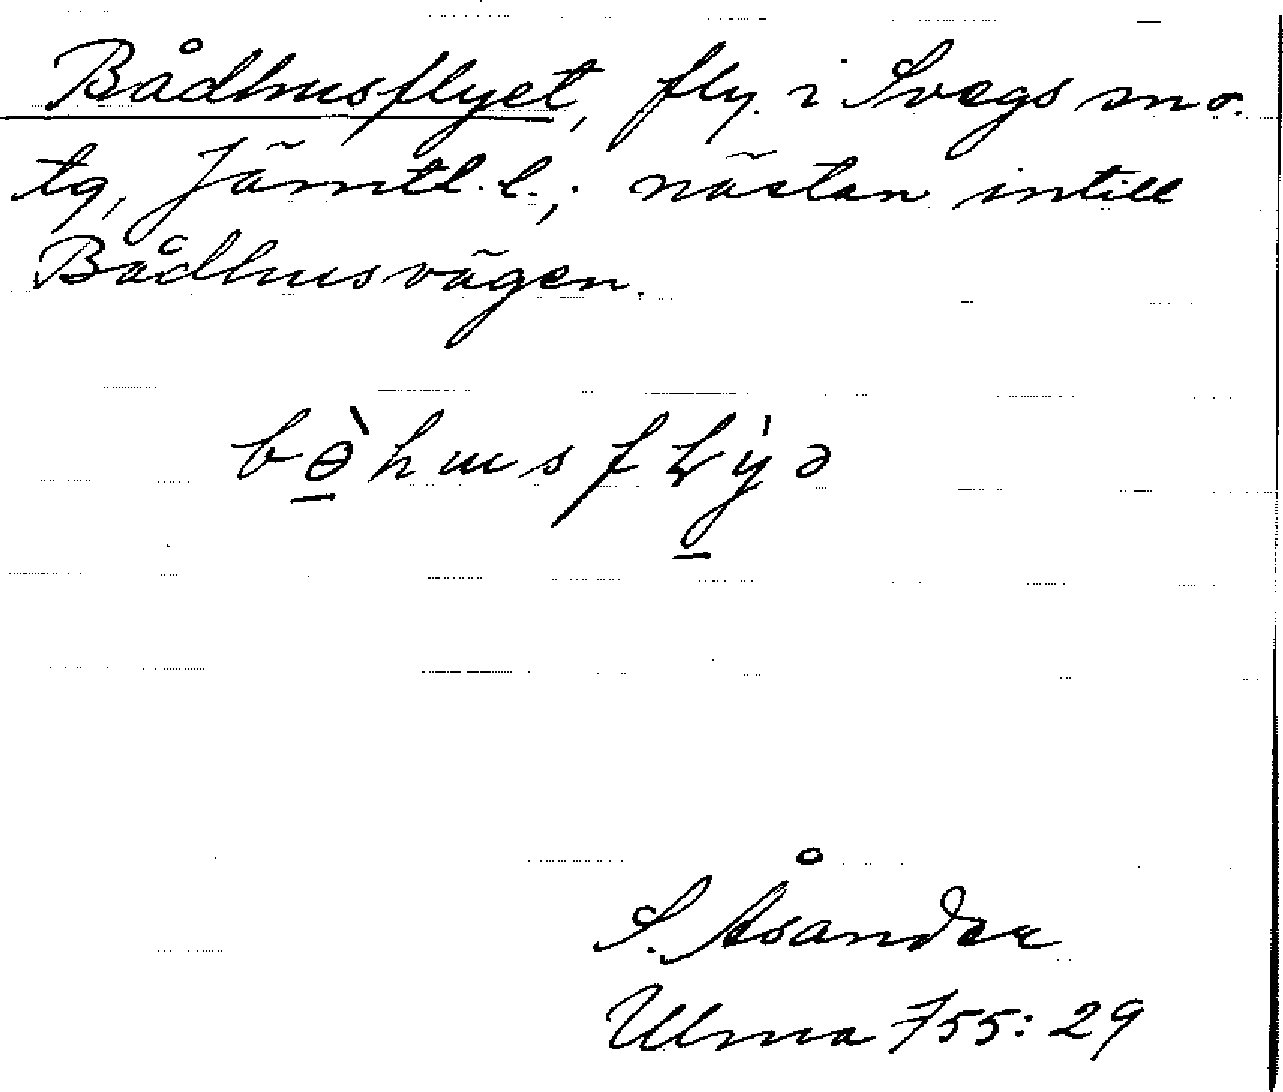 Bådhusflyet, fly. i Svegs sn o.
tg, Jämtl. l.; nästan intill
Bådhusvägen.
S. Åsander
Ulma 755: 29